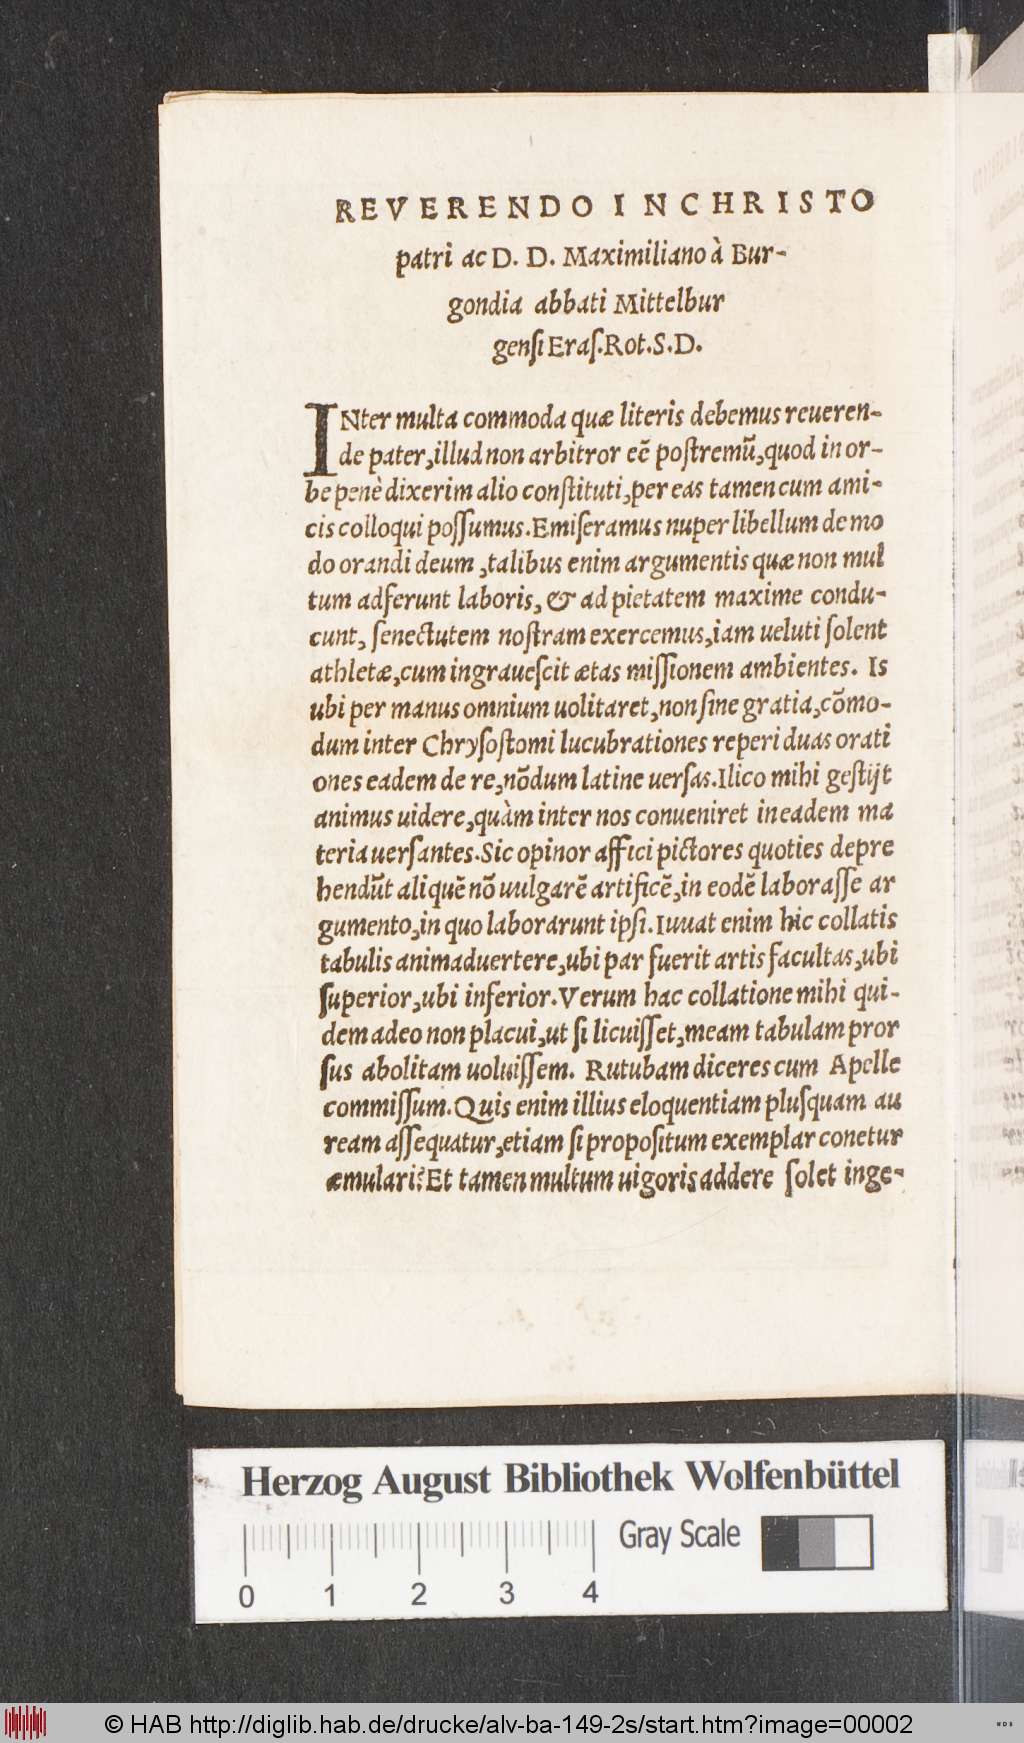 REVERENDO IN CHRISTO
patri ac D. D. Maximiliano à Bur-
gondia abbati Mittelbur
gensi Eraſ.Rot.S.D.
INter multa commoda quæ literis debemus reueren-
de pater,illud non arbitror eẽ poſtremũ,quod in or-
be penè dixerim alio conſtituti,per eas tamen cum ami-
cis colloqui poſſumus.Emiſeramus nuper libellum de mo
do orandi deum ,talibus enim argumentis quæ non mul
tum adferunt laboris, & ad pietatem maxime condu-
cunt, ſenectutem noſtram exercemus,iam ueluti ſolent
athletæ,cum ingraueſcit ætas miſſionem ambientes. Is
ubi per manus omnium uolitaret,non ſine gratia,cõmo-
dum inter Chryſoſtomi lucubrationes reperi duas orati
ones eadem de re,nõdum latine uerſas.Ilico mihi geſtijt
animus uidere,quàm inter nos conueniret in eadem ma
teria uerſantes.Sic opinor affici pictores quoties depre
hendũt aliquẽ nõ uulgarẽ artificẽ,in eodẽ laboraſſe ar
gumento,in quo laborarunt ipſi.Iuuat enim hic collatis
tabulis animaduertere,ubi par fuerit artis facultas,ubi
ſuperior,ubi inferior.Verum hac collatione mihi qui-
dem adeo non placui,ut ſi licuiſſet,meam tabulam pror
ſus abolitam uoluiſſem. Rutubam diceres cum Apelle
commiſſum.Quis enim illius eloquentiam pluſquam au
ream aſſequatur,etiam ſi propoſitum exemplar conetur
æmulari?Et tamen multum uigoris addere ſolet inge-
Herzog August Bibliothek Wolfenbüttel
Gray Scale
0 1 2 3 4
© HAB http://diglib.hab.de/drucke/alv-ba-149-2s/start.htm?image=00002